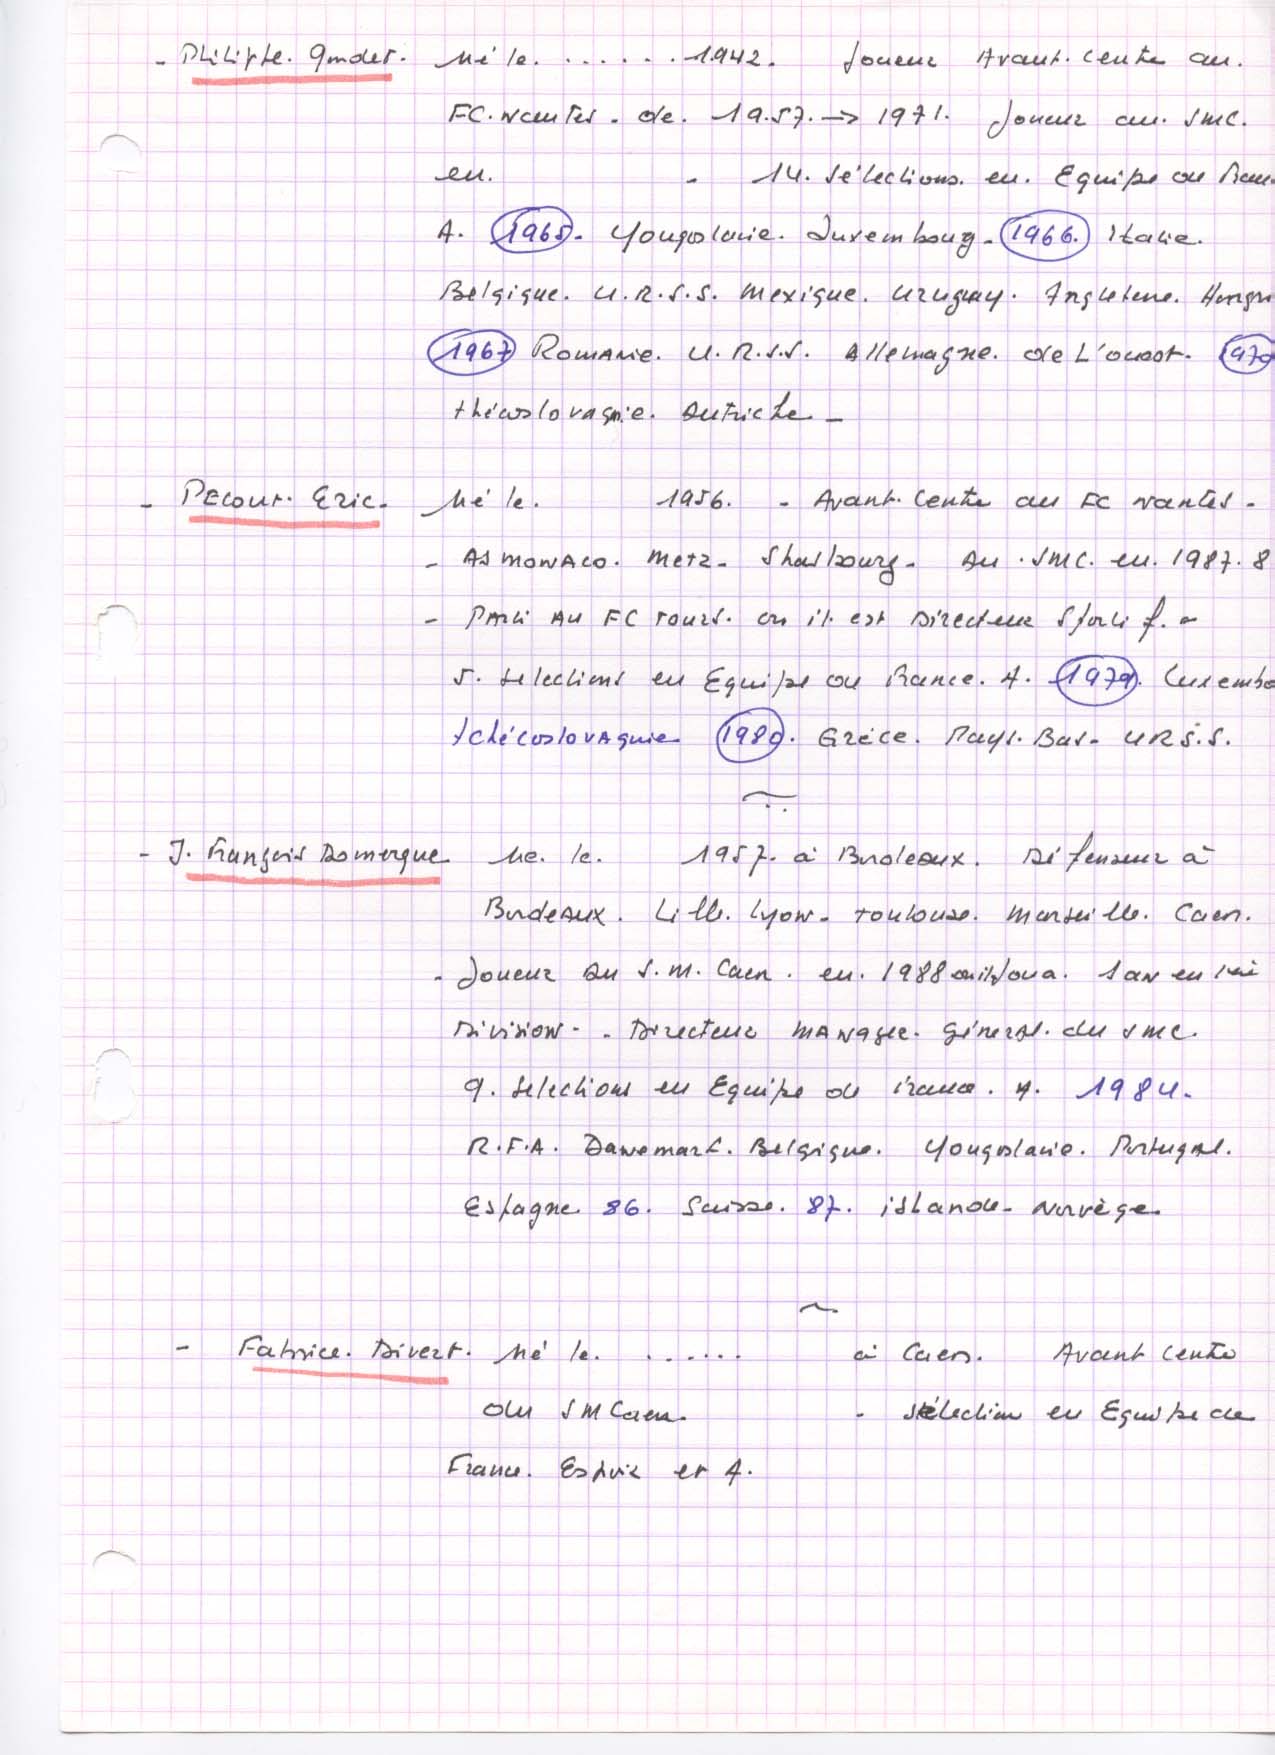 - Philippe. Gondet. Né le. ...... 1942. Joueur Avant. Centre au.
FC. Nantes. de. 19.57. → 1971. Joueur au. SMC.
en. - 14. Sélections. en. Equipe de Fran
A. 1965. Yougoslavie. Luxembourg. 1966. Italie.
Belgique. U.R.S.S. Mexique. Uruguay. Angleterre. Hongri
1967 Romanie. U.R.S.S. Allemagne. de L'ouest. 1970
théco​slovaqnie. Autriche -
- Pecout. Eric. Né le. 1956. - Avant. Centre au FC Nantes -
- AS MONACO. Metz - Strasbourg - Au. SMC. en. 1987. 8
- Parti AU FC TOURS. ou il est Directeur Sportif. -
5. Selections en Equipe de France. A. 1979. Luxembo
tchécoslovaquie. 1980. Grèce. Pays. Bas - URS.S.
~
- J. François Domergue. Né. le. 1957. à Bordeaux. Défenseur à
Bordeaux. Lille. Lyon - Toulouse. Marseille. Caen.
- Joueur Au S.M. Caen. en. 1988 ou il joua. 1 an en 1ère
Division - - Directeur Manager. Général. du SMC.
9. Selections en Equipe de France. A. 1984.
R.F.A. Danemark. Belgique. Yougoslavie. Portugal.
Espagne 86. Suisse. 87. islande - Norvège.
~
- Fabrice. Divert. Né le. ...... à Caen. Avant Centre
du SMCaen. - Sélection en Equipe de
France. Espoir et A.